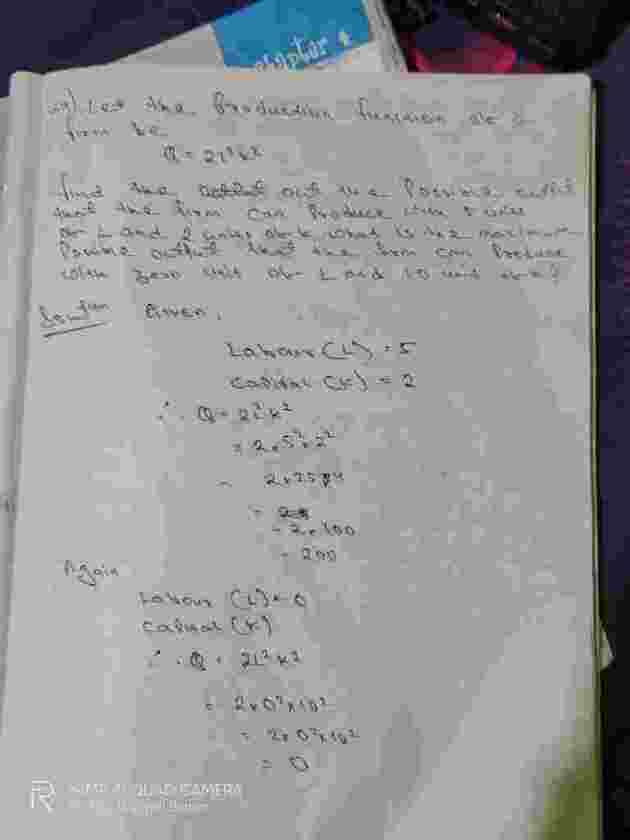 chapter 4
Let the Production function of a
firm be
Q = 2L²K²
find the out the Possible output
that the firm can Produce with 5 units
of L and 2 units of K. What is the maximum
Possible output that the firm can Produce
with zero unit of L and 10 unit of K?
Given,
Labour (L) = 5
Capital (K) = 2
∴ Q = 2L²K²
= 2×5²×2²
= 2×25×4
= 2×100
= 200
Again
Labour (L) = 0
Capital (K)
∴ Q = 2L²K²
= 2×0²×10²
= 2×0²×10²
= 0
QUAD CAMERA